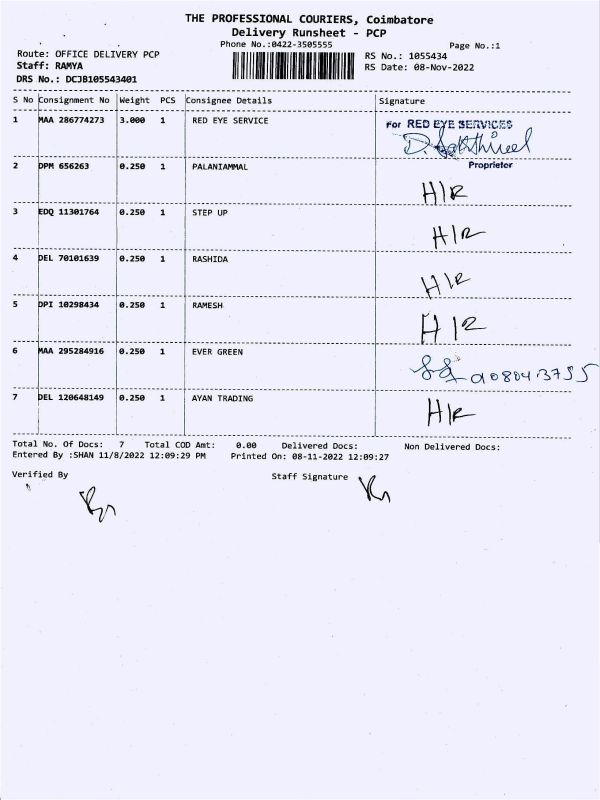 THE PROFESSIONAL COURIERS, Coimbatore
Delivery Runsheet - PCP
Phone No.:0422-3505555
Page No.:1
Route: OFFICE DELIVERY PCP
RS No.: 1055434
Staff: RAMYA
RS Date: 08-Nov-2022
DRS No.: DCJB105543401
S No Consignment No Weight PCS Consignee Details Signature
1 MAA 286774273 3.000 1 RED EYE SERVICE
For RED EYE SERVICES
Proprietor
2 DPM 656263 0.250 1 PALANIAMMAL
H/R
3 EDQ 11301764 0.250 1 STEP UP
H/R
4 DEL 70101639 0.250 1 RASHIDA
H/R
5 DPI 10298434 0.250 1 RAMESH
H/R
6 MAA 295284916 0.250 1 EVER GREEN
7 DEL 120648149 0.250 1 AYAN TRADING
H/R
Total No. Of Docs: 7 Total COD Amt: 0.00 Delivered Docs: Non Delivered Docs:
Entered By :SHAN 11/8/2022 12:09:29 PM Printed On: 08-11-2022 12:09:27
Verified By Staff Signature